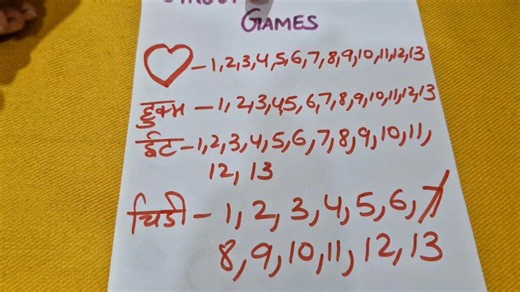 GAMES
– 1, 2, 3, 4, 5, 6, 7, 8, 9, 10, 11, 12, 13
हुकम – 1, 2, 3, 4, 5, 6, 7, 8, 9, 10, 11, 12, 13
ईट – 1, 2, 3, 4, 5, 6, 7, 8, 9, 10, 11,
12, 13
चिडी – 1, 2, 3, 4, 5, 6, 7
8, 9, 10, 11, 12, 13